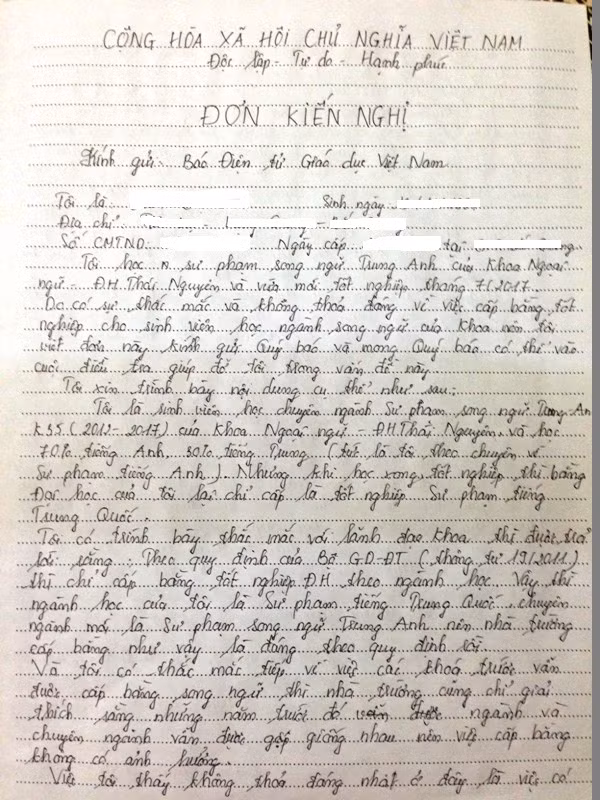 CỘNG HÒA XÃ HỘI CHỦ NGHĨA VIỆT NAM
Độc lập - Tự do - Hạnh phúc
ĐƠN KIẾN NGHỊ
Kính gửi: Báo Điện tử Giáo dục Việt Nam
Tôi là: Sinh ngày:
Địa chỉ:
Số CMTND: Ngày cấp tại
Tôi học n. sư phạm song ngữ Trung Anh của Khoa Ngoại
ngữ - ĐH Thái Nguyên và vừa mới tốt nghiệp tháng 7/2017.
Do có sự thắc mắc và không thoả đáng về việc cấp bằng tốt
nghiệp cho sinh viên học ngành song ngữ của Khoa nên tôi
viết đơn này kính gửi Quý báo và mong Quý báo có thể vào
cuộc điều tra giúp đỡ tôi trong vấn đề này.
Tôi xin trình bày nội dung cụ thể như sau:
Tôi là sinh viên học chuyên ngành Sư phạm song ngữ Trung-Anh
K35 (2012-2017) của Khoa Ngoại ngữ - ĐH Thái Nguyên và học
70% tiếng Anh, 30% tiếng Trung (tức là tôi theo chuyên về
Sư phạm tiếng Anh). Nhưng khi học xong tốt nghiệp thì bằng
Đại học của tôi lại chỉ cấp là tốt nghiệp Sư phạm tiếng
Trung Quốc.
Tôi có trình bày thắc mắc với lãnh đạo khoa thì được trả
lời rằng: Theo quy định của Bộ GD-ĐT (tháng tư 19/2011)
thì chỉ cấp bằng tốt nghiệp ĐH theo ngành học. Vậy thì
ngành học của tôi là Sư phạm tiếng Trung Quốc, chuyên
ngành mới là Sư phạm song ngữ Trung Anh nên nhà trường
cấp bằng như vậy là đúng theo quy định rồi.
Và tôi có thắc mắc tiếp về việc các khoá trước vẫn
được cấp bằng song ngữ thì nhà trường cũng chỉ giải
thích rằng những năm trước đó ngành và
chuyên ngành vẫn được gộp giống nhau nên việc cấp bằng
không có ảnh hưởng.
Việc tôi thấy không thoả đáng nhất ở đây là việc có